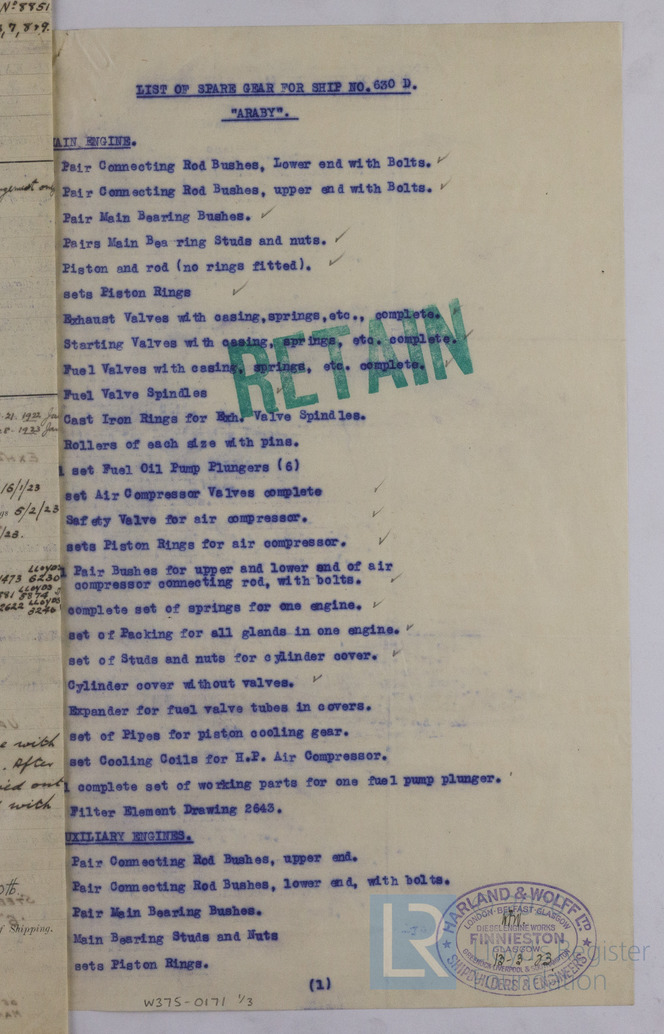 Nº 8851
LIST OF SPARE GEAR FOR SHIP NO.630 D.
"ARABY".
AIN ENGINE.
Pair Connecting Rod Bushes, Lower end with Bolts. ✓
Pair Connecting Rod Bushes, upper end with Bolts. ✓
Pair Main Bearing Bushes. ✓
Pairs Main Bea ring Studs and nuts. ✓
Piston and rod (no rings fitted). ✓
sets Piston Rings ✓
Exhaust Valves with casing,springs,etc., complete.
Starting Valves with casing, springs, etc. complete.
Fuel Valves with casing, springs, etc. complete.
Fuel Valve Spindles
Cast Iron Rings for Exh. Valve Spindles.
Rollers of each size with pins.
1 set Fuel Oil Pump Plungers (6)
set Air Compressor Valves complete ✓
Safety Valve for air compressor. ✓
sets Piston Rings for air compressor. ✓
1 Pair Bushes for upper and lower end of air
compressor connecting rod, with bolts. ✓
complete set of springs for one engine. ✓
set of Packing for all glands in one engine. ✓
set of Studs and nuts for cylinder cover. ✓
Cylinder cover without valves. ✓
Expander for fuel valve tubes in covers.
set of Pipes for piston cooling gear.
set Cooling Coils for H.P. Air Compressor.
1 complete set of working parts for one fuel pump plunger.
Filter Element Drawing 2643.
UXILIARY ENGINES.
Pair Connecting Rod Bushes, upper end.
Pair Connecting Rod Bushes, lower end, with bolts.
Pair Main Bearing Bushes.
Main Bearing Studs and Nuts
sets Piston Rings.
(1)
W375-0171 1/3
RETAIN
HARLAND & WOLFF LD
LONDON-BELFAST-GLASGOW
DIESEL ENGINE WORKS
FINNIESTON
GLASGOW
13-3-23
SHIPBUILDERS & ENGINEERS
LR
Register
Foundation
16/1/23
5/2/23
LLOYDS
1473 6230
LLOYDS
8874
LLOYDS
2622 3246
e with
. After
ied out
with
Shipping.